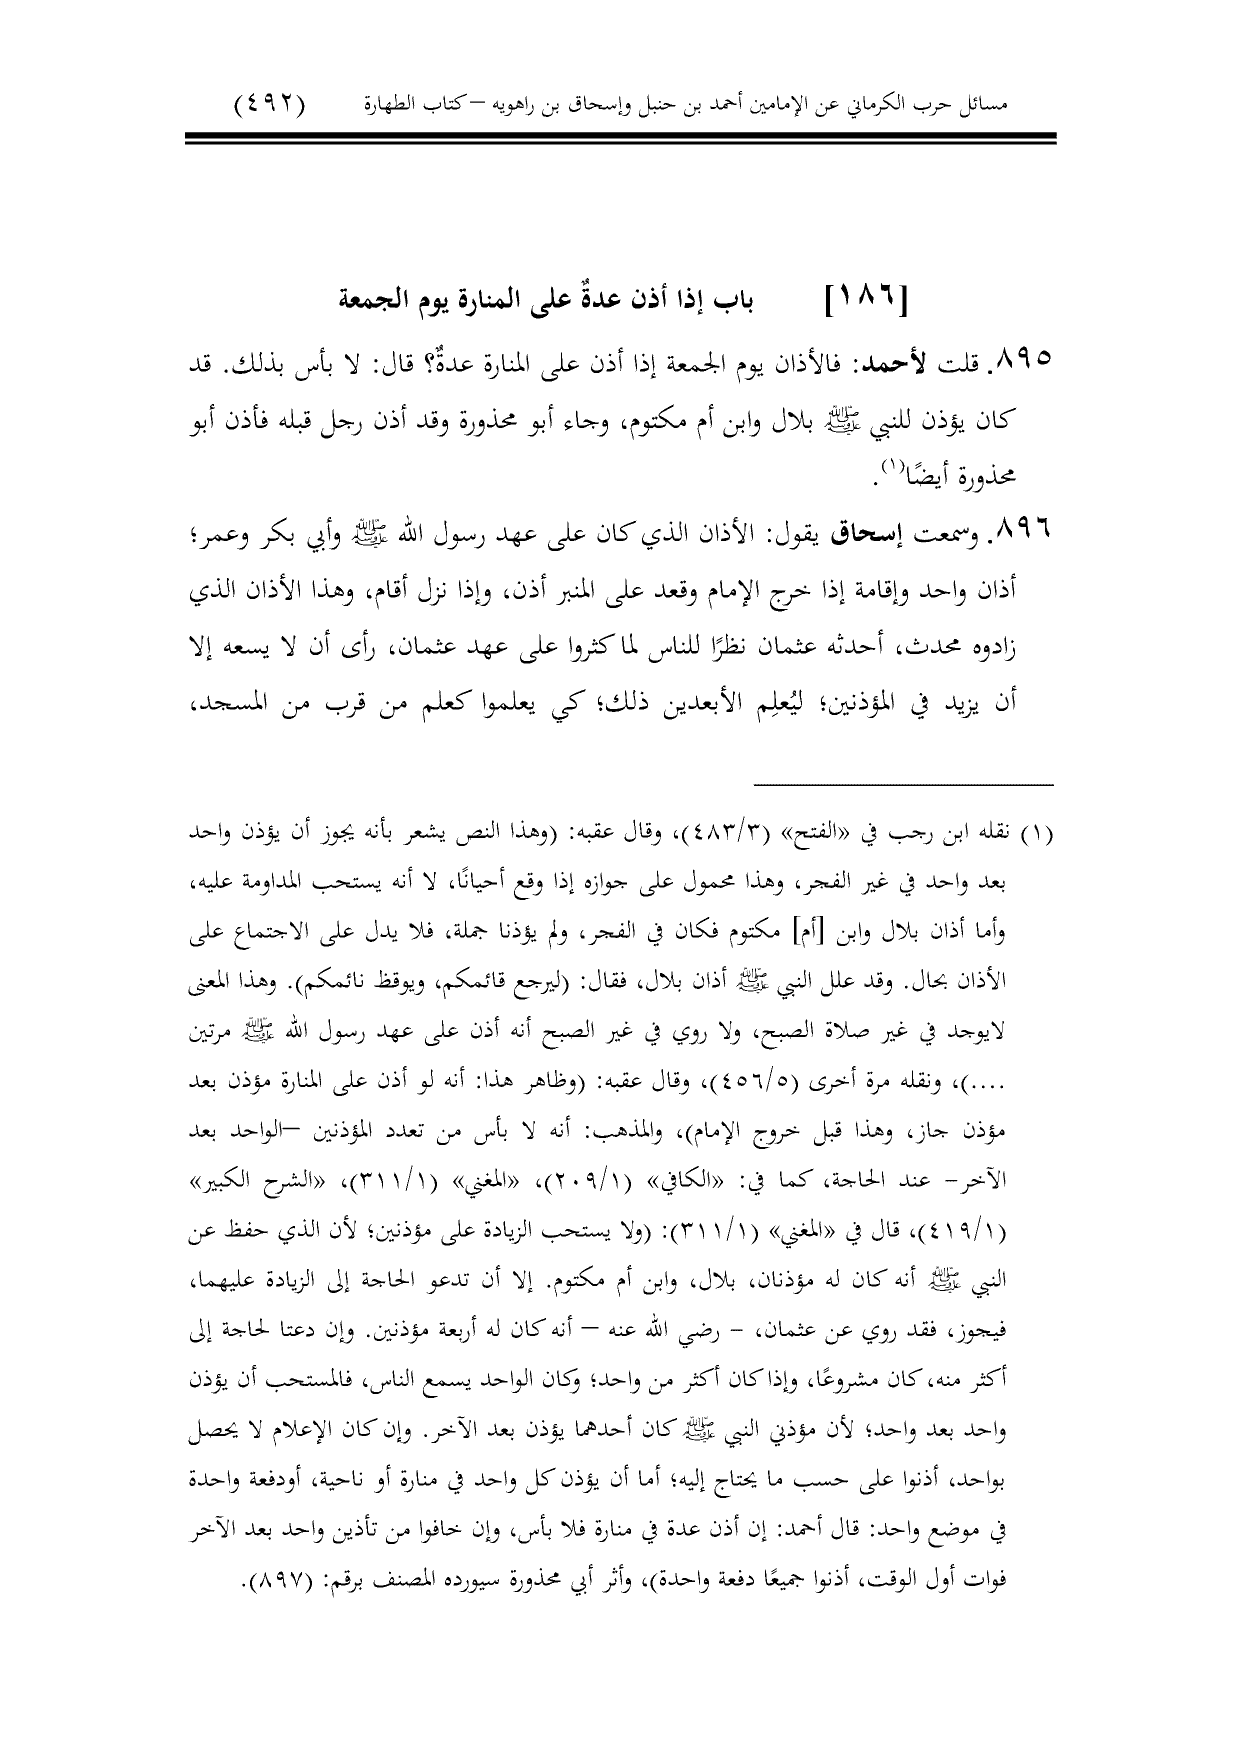 مسائل حرب الكرماني عن الإمامين أحمد بن حنبل وإسحاق بن راهويه – كتاب الطهارة (٤٩٢)
[١٨٦] باب إذا أذن عدةٌ على المنارة يوم الجمعة
٨٩٥. قلت لأحمد: فالأذان يوم الجمعة إذا أذن على المنارة عدةٌ؟ قال: لا بأس بذلك. قد
كان يؤذن للنبي ﷺ بلال وابن أم مكتوم، وجاء أبو محذورة وقد أذن رجل قبله فأذن أبو
محذورة أيضًا(١).
٨٩٦. وسمعت إسحاق يقول: الأذان الذي كان على عهد رسول الله ﷺ وأبي بكر وعمر؛
أذان واحد وإقامة إذا خرج الإمام وقعد على المنبر أذن، وإذا نزل أقام، وهذا الأذان الذي
زادوه محدث، أحدثه عثمان نظرًا للناس لما كثروا على عهد عثمان، رأى أن لا يسعه إلا
أن يزيد في المؤذنين؛ ليُعلِم الأبعدين ذلك؛ كي يعلموا كعلم من قرب من المسجد،
(١) نقله ابن رجب في «الفتح» (٤٨٣/٣)، وقال عقبه: (وهذا النص يشعر بأنه يجوز أن يؤذن واحد
بعد واحد في غير الفجر، وهذا محمول على جوازه إذا وقع أحيانًا، لا أنه يستحب المداومة عليه،
وأما أذان بلال وابن [أم] مكتوم فكان في الفجر، ولم يؤذنا جملة، فلا يدل على الاجتماع على
الأذان بحال. وقد علل النبي ﷺ أذان بلال، فقال: (ليرجع قائمكم، ويوقظ نائمكم). وهذا المعنى
لايوجد في غير صلاة الصبح، ولا روي في غير الصبح أنه أذن على عهد رسول الله ﷺ مرتين
....)، ونقله مرة أخرى (٤٥٦/٥)، وقال عقبه: (وظاهر هذا: أنه لو أذن على المنارة مؤذن بعد
مؤذن جاز، وهذا قبل خروج الإمام)، والمذهب: أنه لا بأس من تعدد المؤذنين –الواحد بعد
الآخر- عند الحاجة، كما في: «الكافي» (٢٠٩/١)، «المغني» (٣١١/١)، «الشرح الكبير»
(٤١٩/١)، قال في «المغني» (٣١١/١): (ولا يستحب الزيادة على مؤذنين؛ لأن الذي حفظ عن
النبي ﷺ أنه كان له مؤذنان، بلال، وابن أم مكتوم. إلا أن تدعو الحاجة إلى الزيادة عليهما،
فيجوز، فقد روي عن عثمان، - رضي الله عنه – أنه كان له أربعة مؤذنين. وإن دعتا لحاجة إلى
أكثر منه، كان مشروعًا، وإذا كان أكثر من واحد؛ وكان الواحد يسمع الناس، فالمستحب أن يؤذن
واحد بعد واحد؛ لأن مؤذني النبي ﷺ كان أحدهما يؤذن بعد الآخر. وإن كان الإعلام لا يحصل
بواحد، أذنوا على حسب ما يحتاج إليه؛ أما أن يؤذن كل واحد في منارة أو ناحية، أودفعة واحدة
في موضع واحد: قال أحمد: إن أذن عدة في منارة فلا بأس، وإن خافوا من تأذين واحد بعد الآخر
فوات أول الوقت، أذنوا جميعًا دفعة واحدة)، وأثر أبي محذورة سيورده المصنف برقم: (٨٩٧).